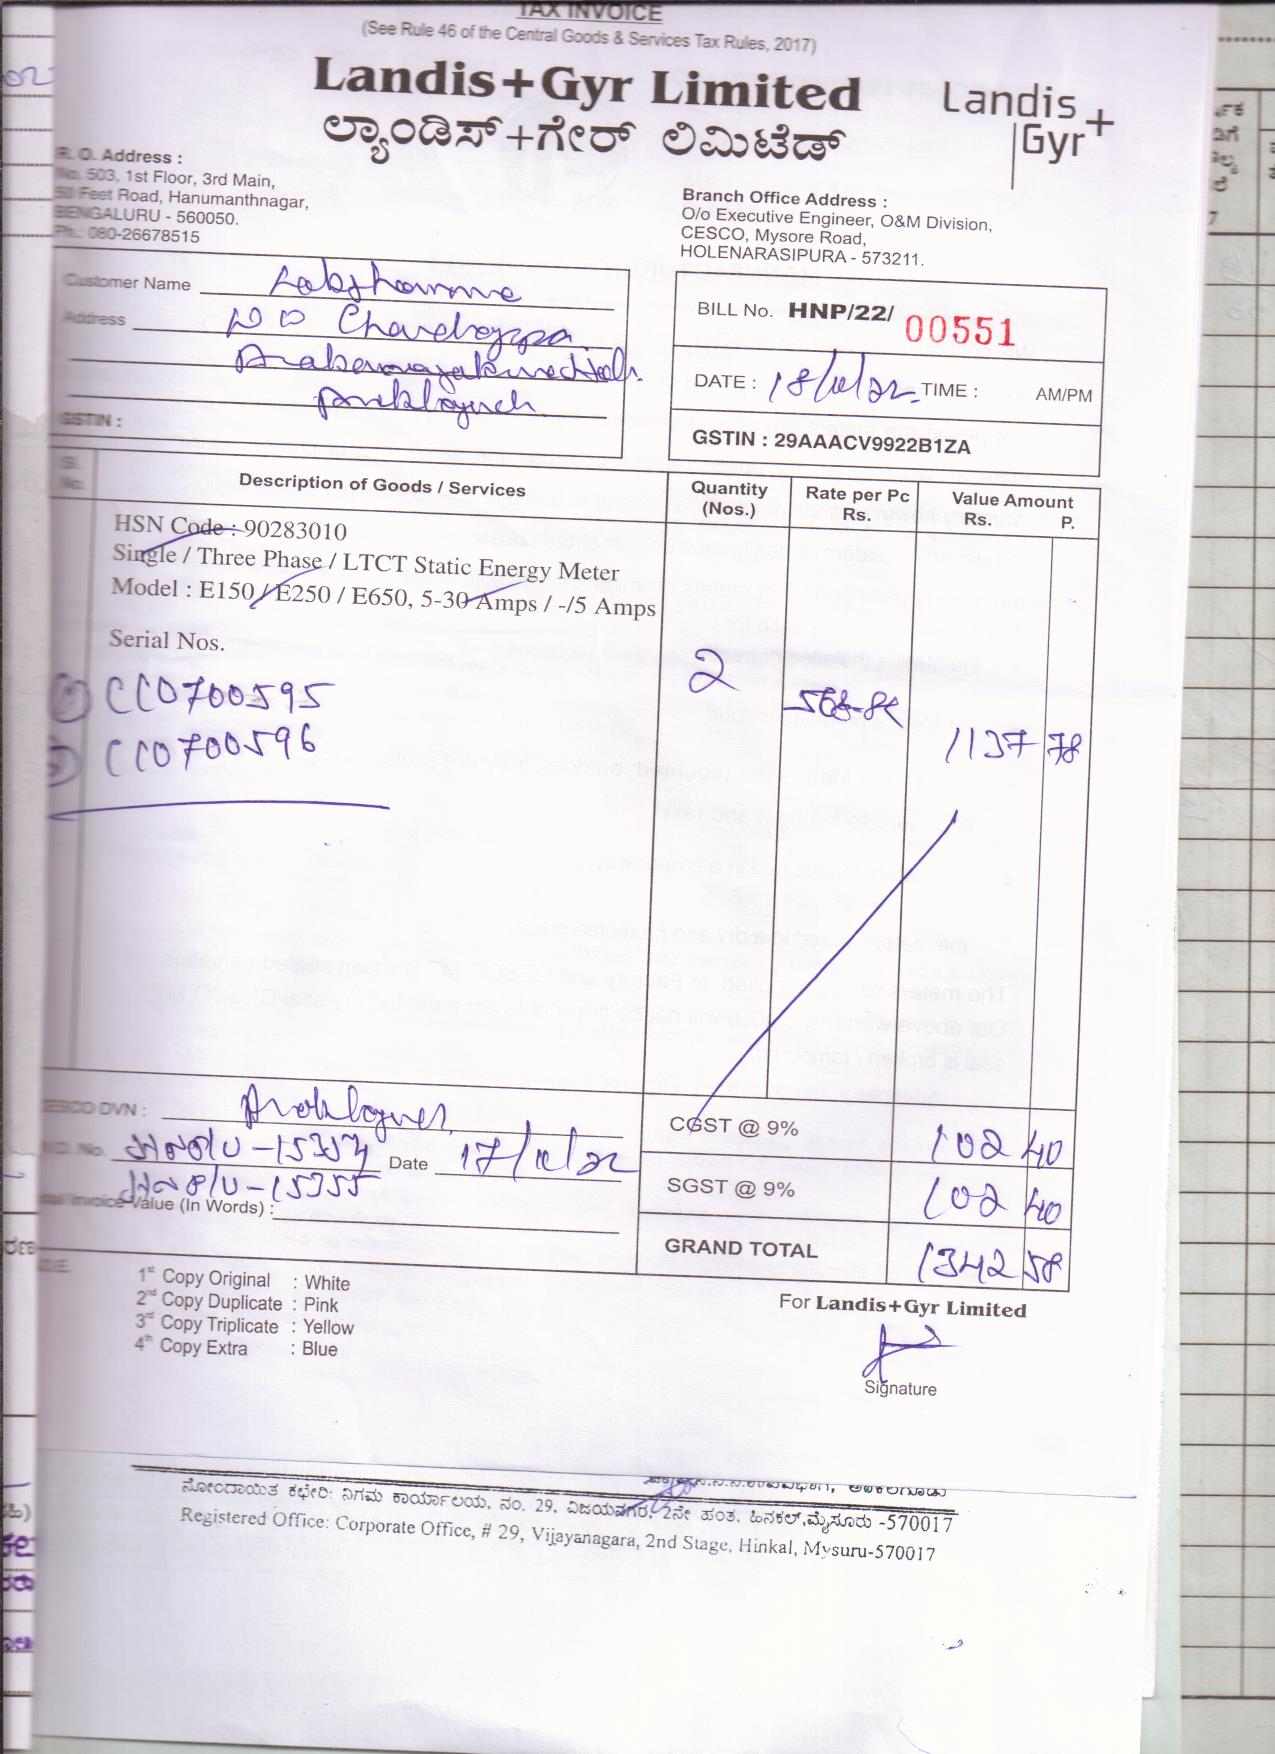 TAX INVOICE
(See Rule 46 of the Central Goods & Services Tax Rules, 2017)
Landis+Gyr Limited
ಲ್ಯಾಂಡಿಸ್+ಗೇರ್ ಲಿಮಿಟೆಡ್
Landis+
Gyr
R. O. Address :
No. 503, 1st Floor, 3rd Main,
50 Feet Road, Hanumanthnagar,
BENGALURU - 560050.
Ph.: 080-26678515
Branch Office Address :
O/o Executive Engineer, O&M Division,
CESCO, Mysore Road,
HOLENARASIPURA - 573211.
Customer Name
Address
GSTIN :
BILL No. HNP/22/ 00551
DATE : 18/10/22. TIME : AM/PM
GSTIN : 29AAACV9922B1ZA
Sl. No. Description of Goods / Services Quantity (Nos.) Rate per Pc Rs. Value Amount Rs. P.
HSN Code : 90283010
Single / Three Phase / LTCT Static Energy Meter
Model : E150 / E250 / E650, 5-30 Amps / -/5 Amps
Serial Nos.
CC0700595 2
CC0700596 1137 78
CESCO DVN :
Date 17/10/22
Total Invoice Value (In Words) :
CGST @ 9% 102 40
SGST @ 9% 102 40
GRAND TOTAL 1342 58
1st Copy Original : White
2nd Copy Duplicate : Pink
3rd Copy Triplicate : Yellow
4th Copy Extra : Blue
For Landis+Gyr Limited
Signature
ನೋಂದಾಯಿತ ಕಛೇರಿ: ನಿಗಮ ಕಾರ್ಯಾಲಯ, ನಂ. 29, ವಿಜಯನಗರ, 2ನೇ ಹಂತ, ಹಿನಕಲ್,ಮೈಸೂರು -570017
Registered Office: Corporate Office, # 29, Vijayanagara, 2nd Stage, Hinkal, Mysuru-570017